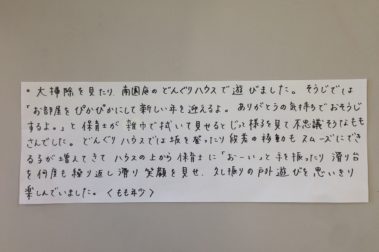 * 大掃除を見たり、南園庭のどんぐりハウスで遊びました。そうじでは
「お部屋をぴかぴかにして新しい年を迎えるよ。ありがとうの気持ちでおそうじ
するよ。」と保育士が雑巾で拭いて見せるとじっと様子を見て不思議そうなもも
さんでした。どんぐりハウスでは坂を登ったり段差の移動もスムーズにでき
る子が増えてきてハウスの上から保育士に「おーい」と手を振ったり滑り台
を何度も繰り返し滑り笑顔を見せ、久し振りの戸外遊びを思いきり
楽しんでいました。〈もも